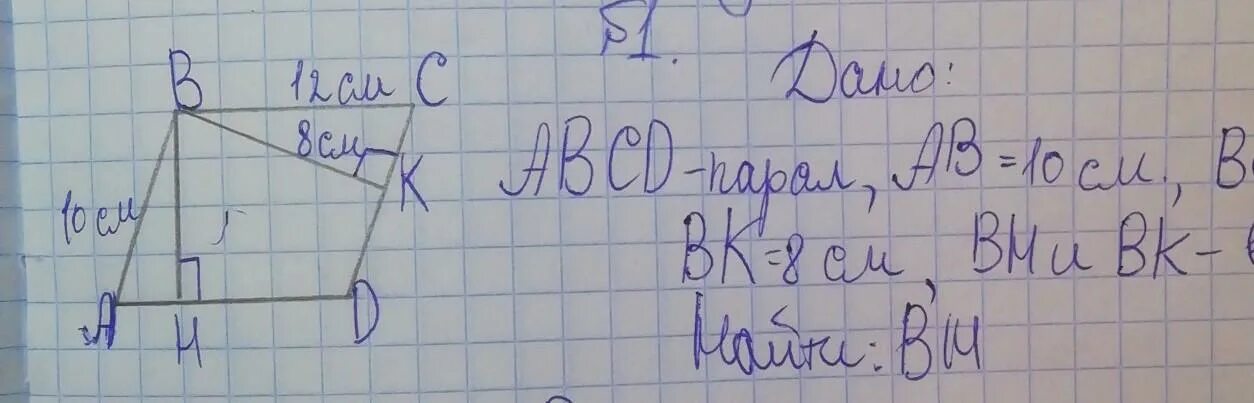 Б1.
Дано:
ABCD-парал, AB=10 см, B
BK=8 см, BH и BK-
Найти: BH
B 12 см C
8 см
K
10 см
A H D